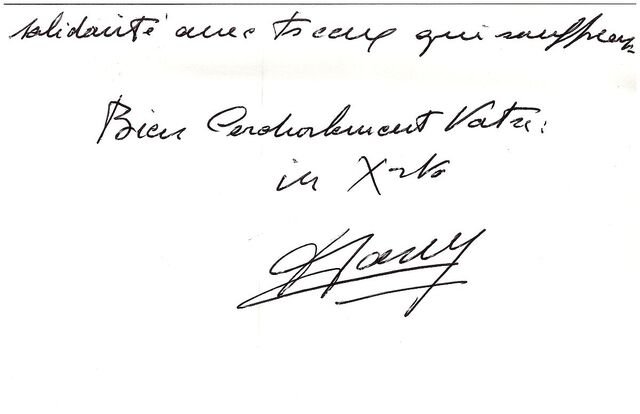 solidarité avec ts ceux qui souffrent
Bien Cordialement Vôtre:
in X-to